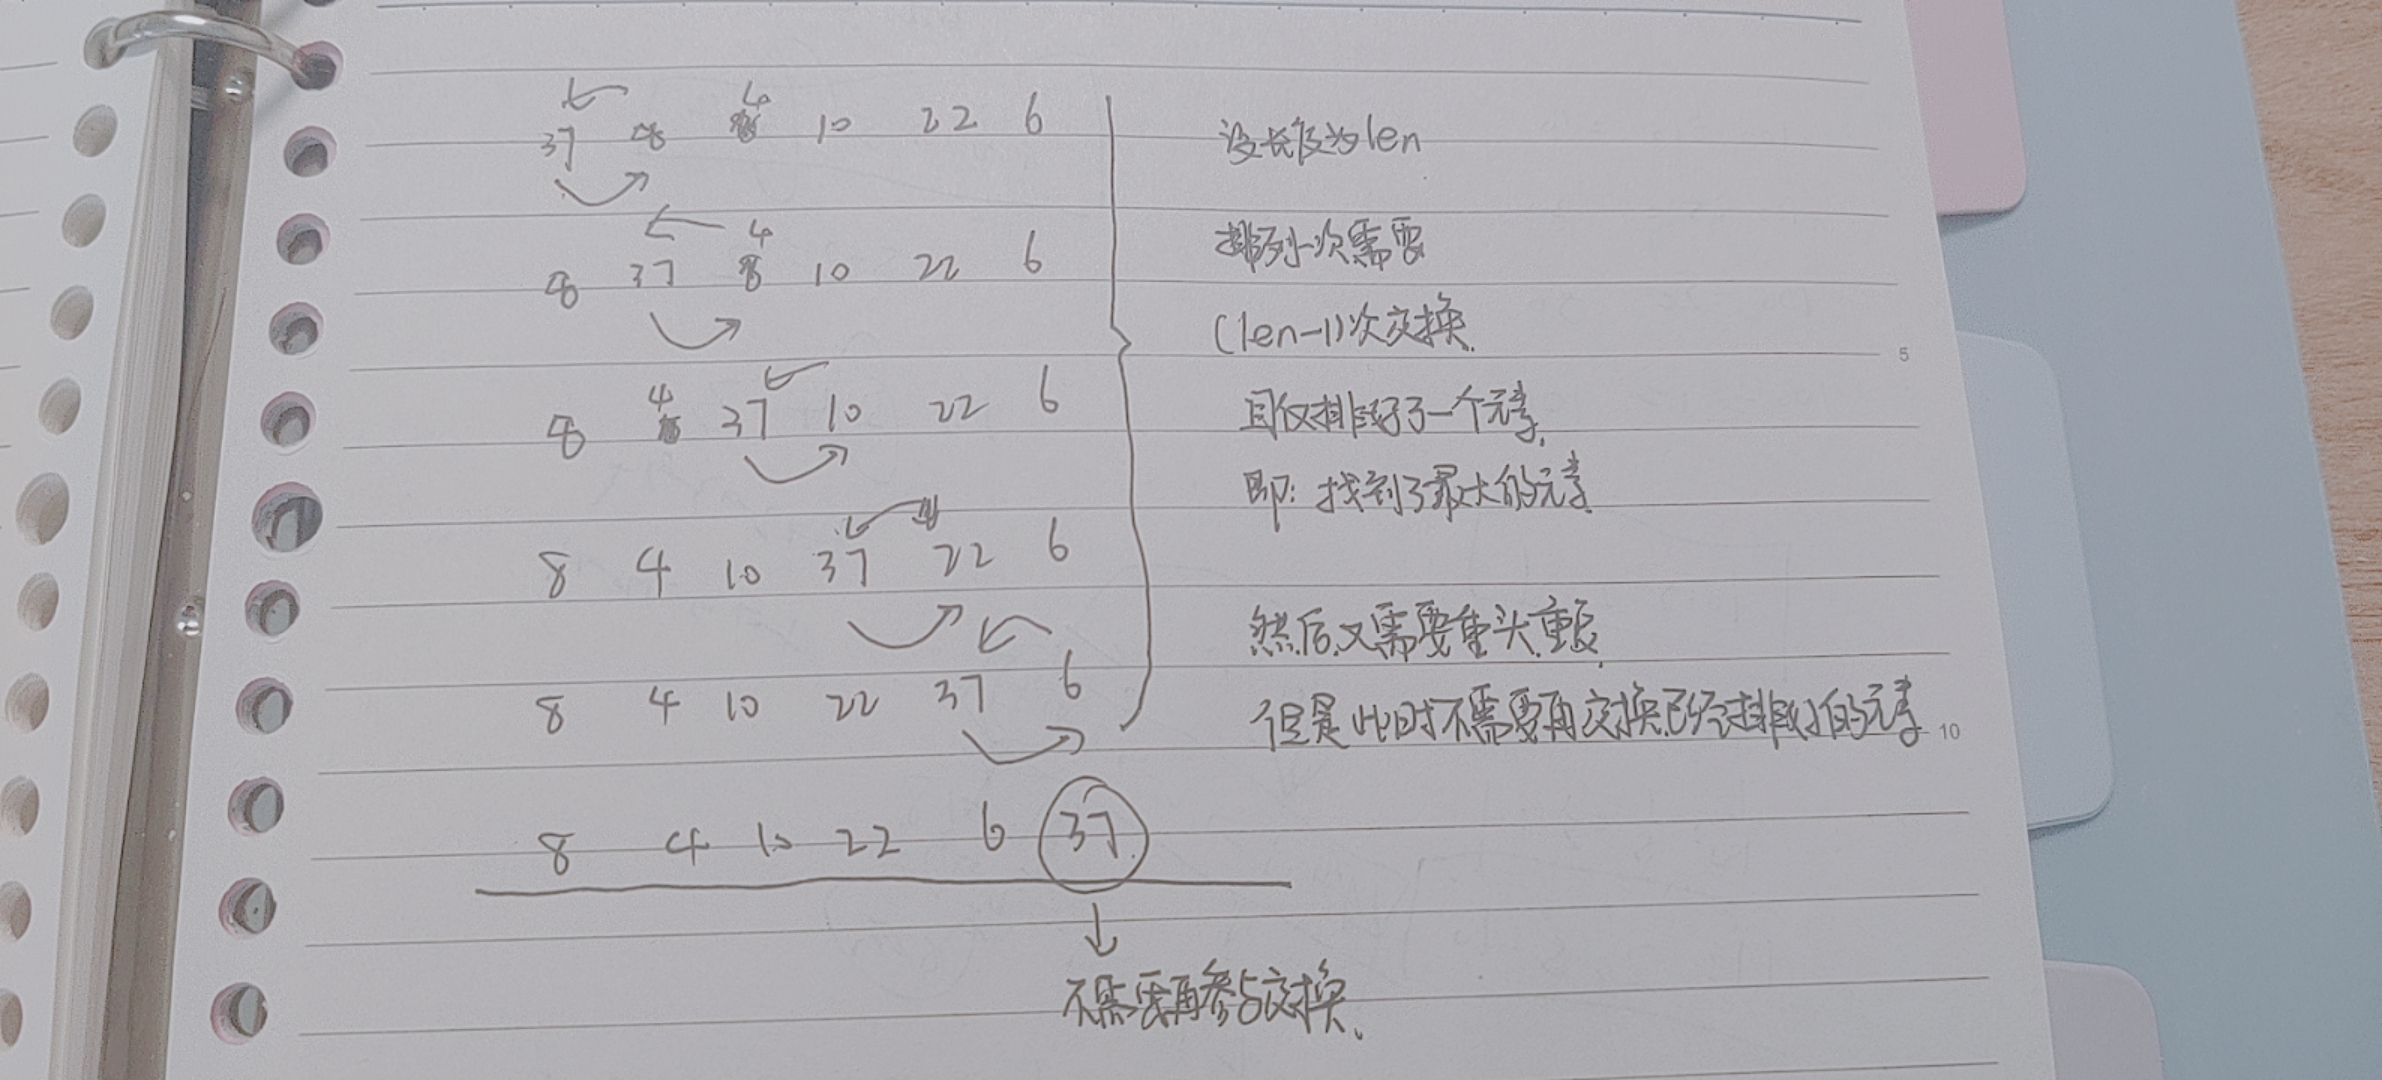 37 8 4 10 22 6
8 37 4 10 22 6
8 4 37 10 22 6
8 4 10 37 22 6
8 4 10 22 37 6
8 4 10 22 6 37
不需要再参与交换.
设长度为len
排列一次需要
(len-1)次交换.
且仅排好了一个元素.
即: 找到了最大的元素.
然后又需要重头重复.
但是此时不需要再交换已经排好的元素
5
10